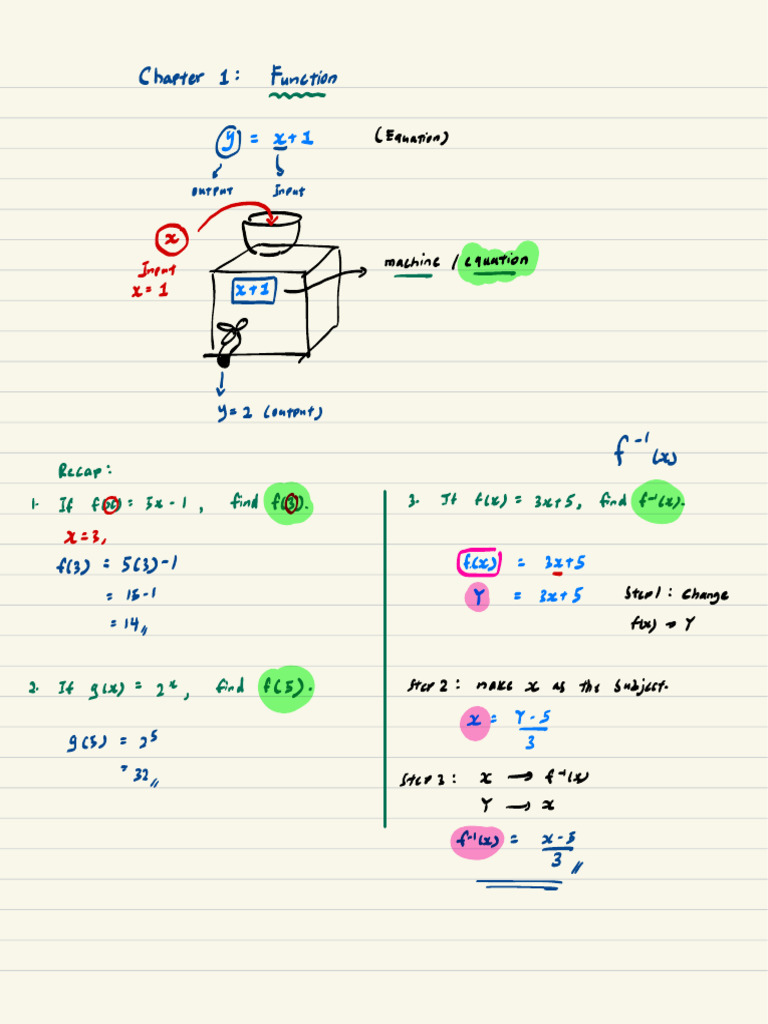 Chapter 1: Function
y = x+1 (Equation)
output Input
x
Input
x = 1
x+1
machine / equation
y = 2 (output)
f⁻¹(x)
Recap:
1. If f(x) = 5x - 1, find f(3).
x = 3,
f(3) = 5(3) - 1
= 15 - 1
= 14
2. If g(x) = 2ˣ, find f(5).
g(5) = 2⁵
= 32
3. If f(x) = 3x+5, find f⁻¹(x).
f(x) = 3x+5
Y = 3x+5 Step 1: Change
f(x) → Y
Step 2: make x as the subject.
x = Y - 5
3
Step 3: x → f⁻¹(x)
Y → x
f⁻¹(x) = x - 5
3